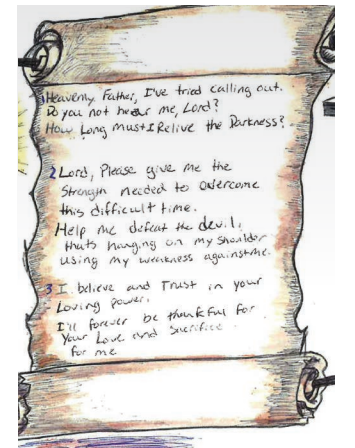 Heavenly Father, I've tried calling out.
Do you not hear me, Lord?
How Long must I Relive the Darkness?
2 Lord, Please give me the
Strength needed to overcome
this difficult time.
Help me defeat the devil,
thats hanging on my shoulder
using my weakness against me.
3 I believe and Trust in your
Loving power.
I'll forever be thankful for
Your Love and Sacrifice
for me